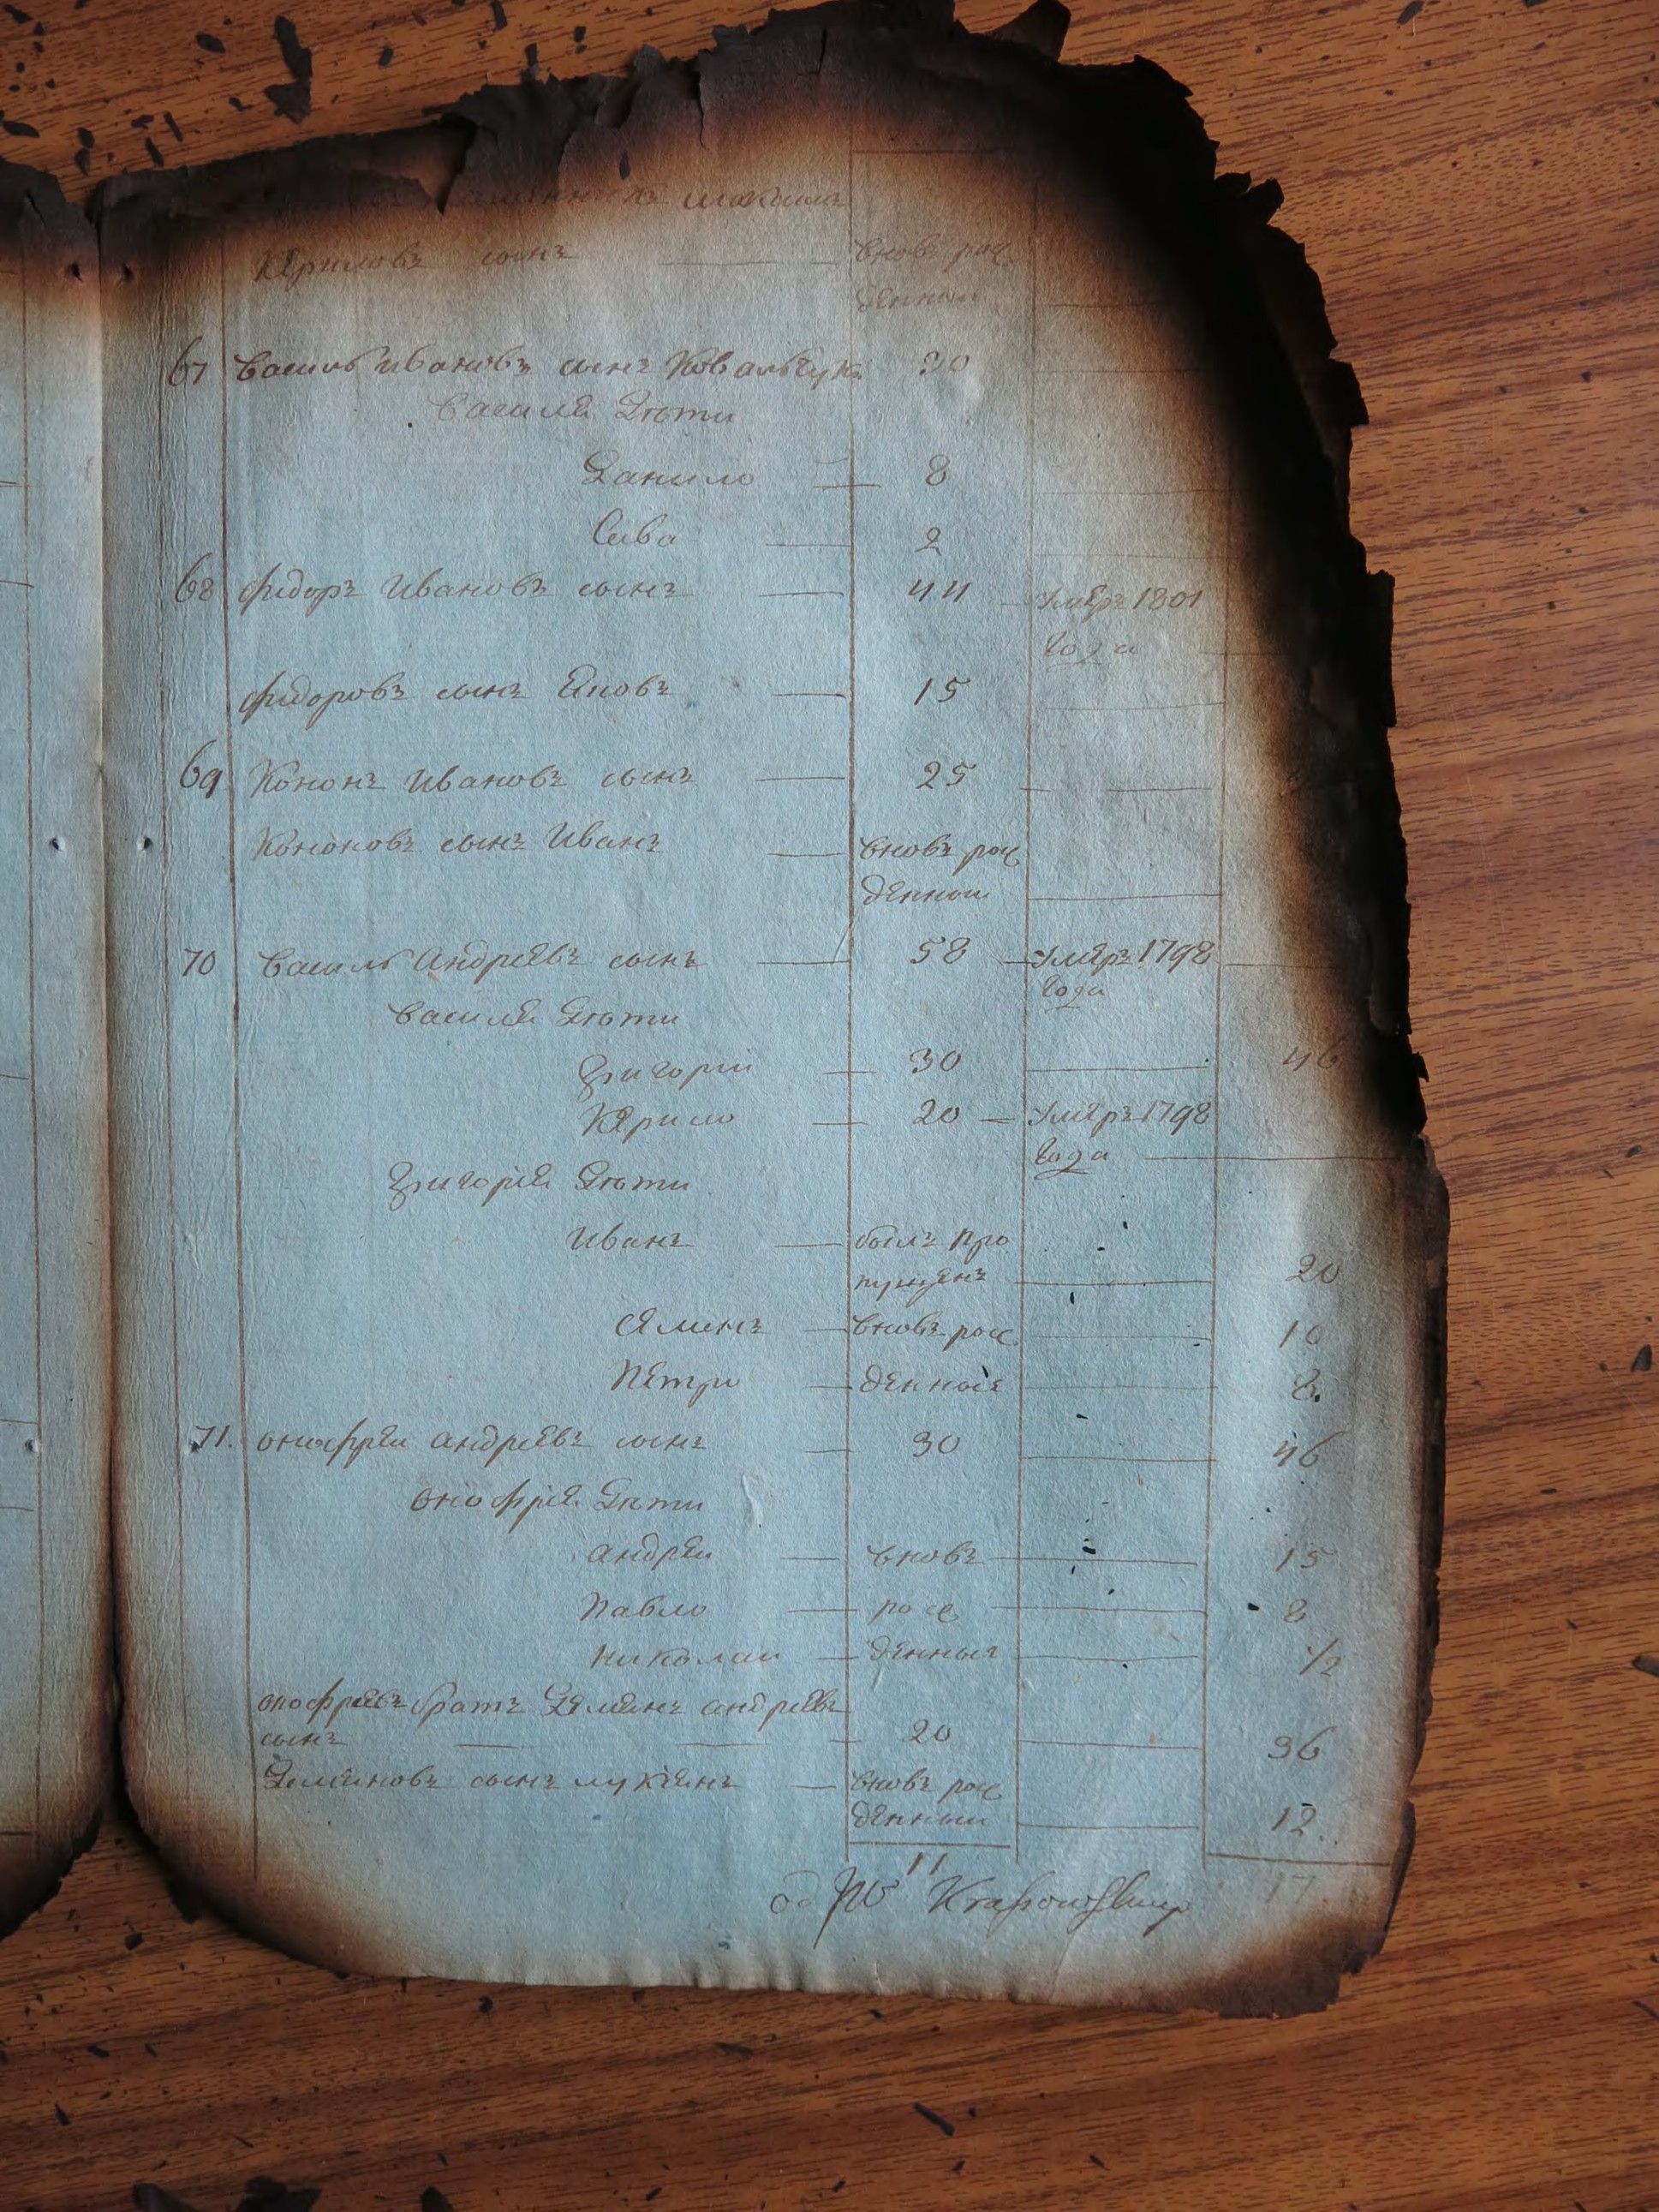 максимъ
Кѣриловъ сынъ — вновъ рож
денныи
67 Василь Ивановъ сынъ Ковальчукъ 30
Василя Дѣти
Данило — 8
Сава — 2
68 Фидоръ Ивановъ сынъ — 44 — Умеръ 1801
года
Фидоровъ сынъ — 15
69 Кононъ Ивановъ сынъ — 25
Кононовъ сынъ Иванъ — вновъ рож
денныи
70 Василь Андреевъ сынъ — 58 — Умеръ 1798
года
Василя Дѣти
Григории — 30 — 46
Керило — 20 — Умеръ 1798
года
Григория Дѣти
Иванъ — былъ про
пущенъ — 20
Семенъ — вновъ рож — 10
Петро — денные — 8
71. Онофреи Андреевъ сынъ — 30 — 46
Онофрея Дѣти
Андреи — вновъ — 15
Павло — рож — 8
Николаи — денные — 1/2
Онофреевъ братъ Демянъ Андреевъ
сынъ — 20 — 36
Демяновъ сынъ Лукянъ — вновъ рож
денныи — 12
11 17